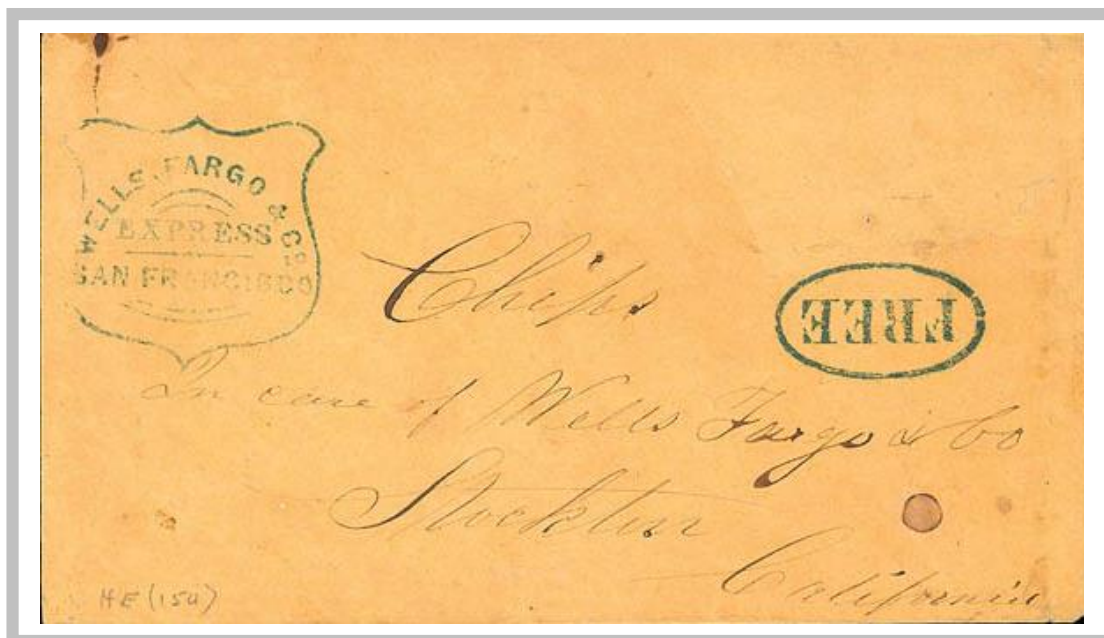 WELLS, FARGO & Co
EXPRESS
SAN FRANCISCO
FREE
Chips
In care of Wells Fargo & Co
Stockton
California
HE (154)